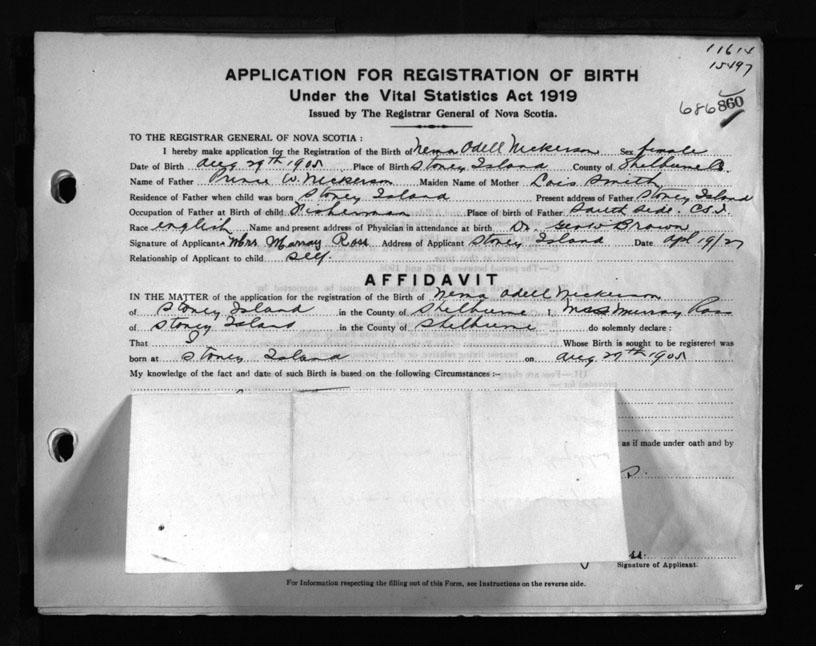 11614
15497
686 860
APPLICATION FOR REGISTRATION OF BIRTH
Under the Vital Statistics Act 1919
Issued by The Registrar General of Nova Scotia.
TO THE REGISTRAR GENERAL OF NOVA SCOTIA :
I hereby make application for the Registration of the Birth of Nema Odell Nickerson Sex female
Date of Birth Aug 29th 1905 Place of Birth Stoney Island County of Shelburne
Name of Father Prince W. Nickerson Maiden Name of Mother Lois Smith
Residence of Father when child was born Stoney Island Present address of Father Stoney Island
Occupation of Father at Birth of child Fisherman Place of birth of Father South Side. C.S.I.
Race english Name and present address of Physician in attendance at birth Dr. Brown
Signature of Applicant Mrs Murray Ross Address of Applicant Stoney Island Date Apl 19/27
Relationship of Applicant to child Self.
AFFIDAVIT
IN THE MATTER of the application for the registration of the Birth of Nema Odell Nickerson
of Stoney Island in the County of Shelburne I, Mrs Murray Ross
of Stoney Island in the County of Shelburne do solemnly declare :
That I Whose Birth is sought to be registered was
born at Stoney Island on Aug 29th 1905
My knowledge of the fact and date of such Birth is based on the following Circumstances :—
as if made under oath and by
Signature of Applicant.
For Information respecting the filling out of this Form, see Instructions on the reverse side.